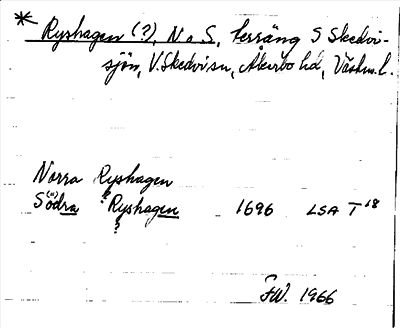 * Ryshagen (?), N o S, terräng S Skedvi-
sjön, V. Skedvi sn, Åkerbo hd, Västm. l.
Norra Ryshagen
?
S(ö)dra Ryshagen 1696 LSA T 18
?
FW. 1966